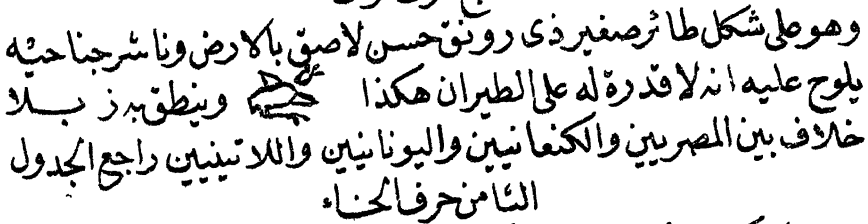 وهو على شكل طائر صغير ذى رونق حسن لاصق بالارض وناشر جناحيه
يلوح عليه انه لا قدرة له على الطيران هكذا وينطق به ز بـــلا
خلاف بين المصريين والكنعانيين واليونانيين واللاتينيين راجع الجدول
الثامن حرف الخـاء